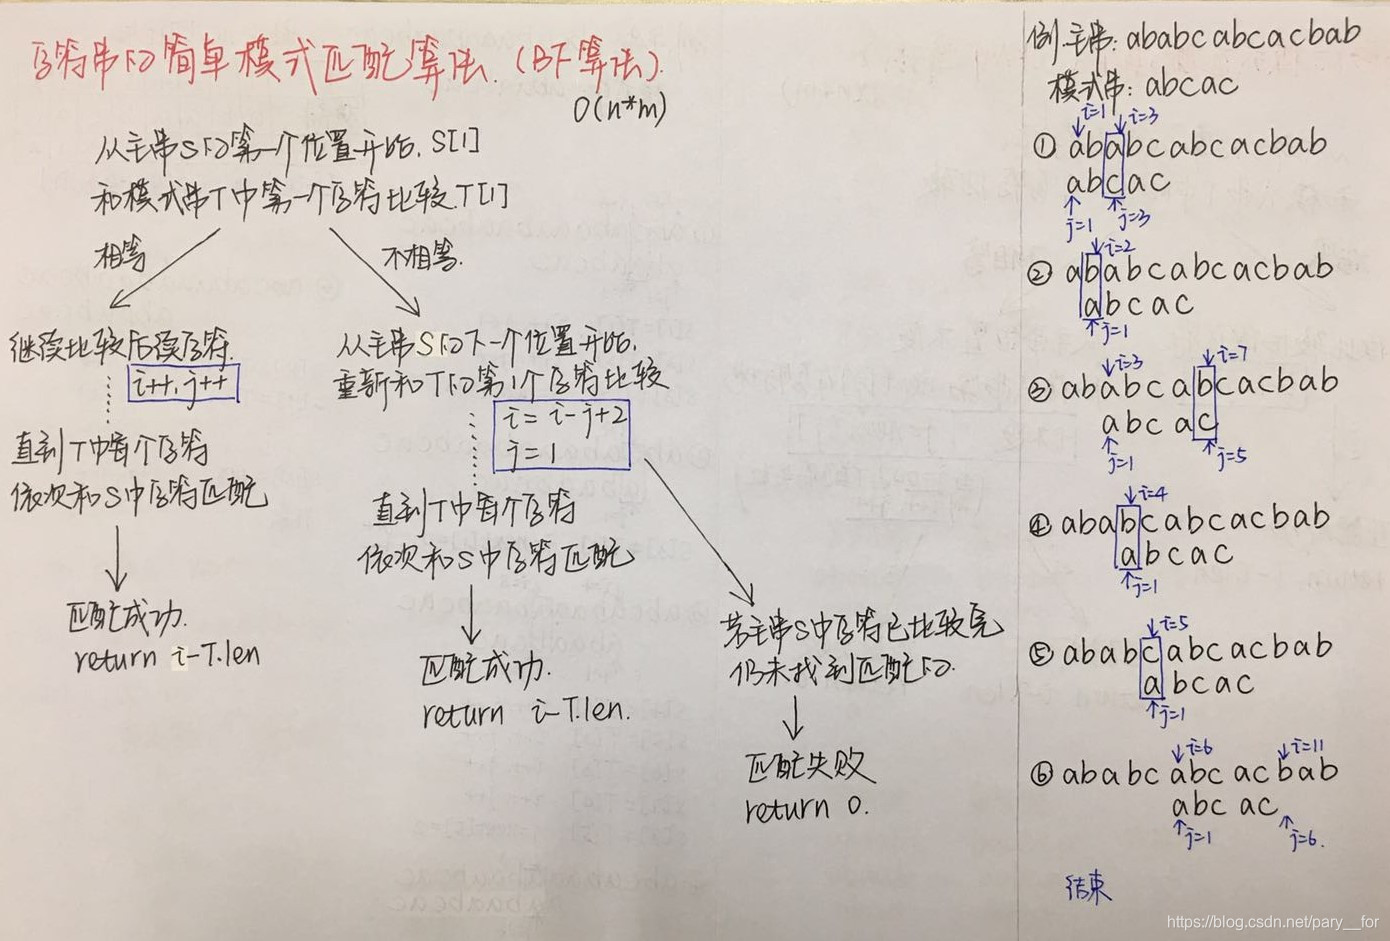 字符串的简单模式匹配算法.(BF算法).
O(n*m)
从主串S的第一个位置开始,S[1]
和模式串T中第一个字符比较,T[1]
相等
不相等.
继续比较后续字符.
i++,j++
直到T中每个字符
依次和S中字符匹配
匹配成功.
return i-T.len
从主串S的下一个位置开始,
重新和T的第1个字符比较
i=i-j+2
j=1
直到T中每个字符
依次和S中字符匹配
匹配成功.
return i-T.len.
若主串S中字符已比较完
仍未找到匹配的.
匹配失败
return 0.
例 主串: ababcabcacbab
模式串: abcac
i=1 i=3
① ababcabcacbab
abcac
j=1 j=3
i=2
② ababcabcacbab
abcac
j=1
i=3 i=7
③ ababcabcacbab
abcac
j=1 j=5
i=4
④ ababcabcacbab
abcac
j=1
i=5
⑤ ababcabcacbab
abcac
j=1
i=6 i=11
⑥ ababcabcacbab
abcac
j=1 j=6.
结束
https://blog.csdn.net/pary__for